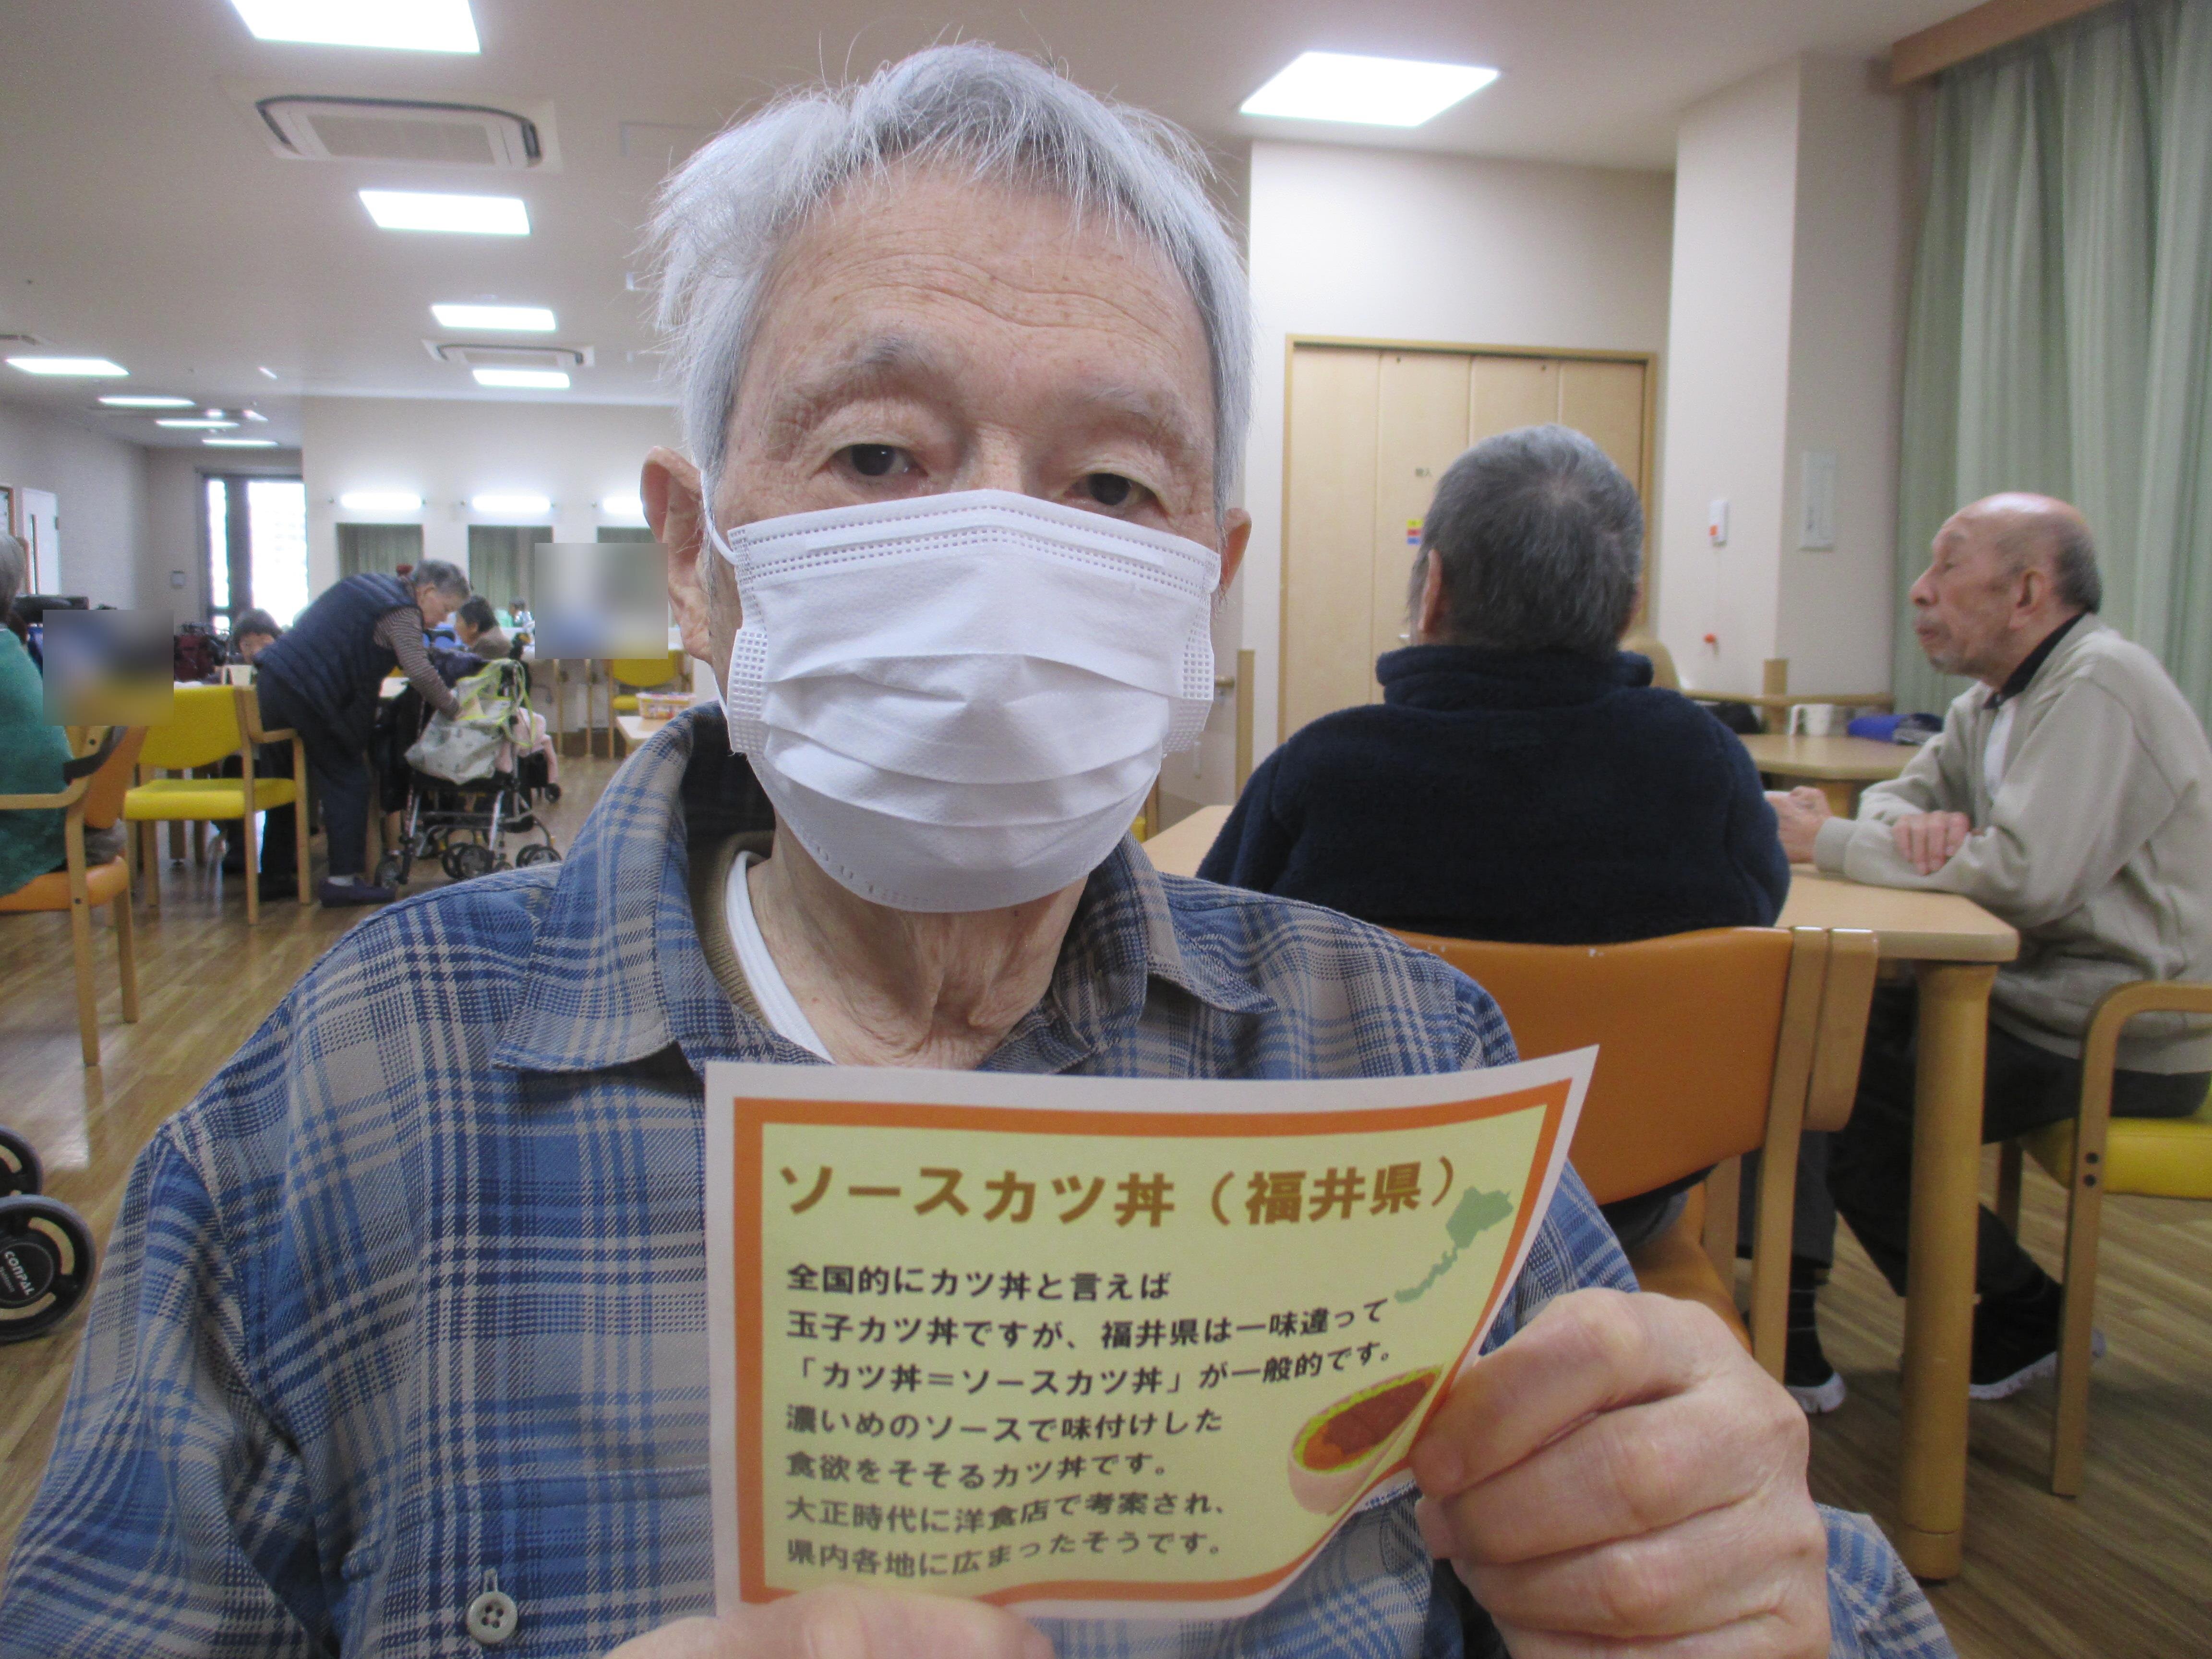 ソースカツ丼（福井県）
全国的にカツ丼と言えば
玉子カツ丼ですが、福井県は一味違って
「カツ丼＝ソースカツ丼」が一般的です。
濃いめのソースで味付けした
食欲をそそるカツ丼です。
大正時代に洋食店で考案され、
県内各地に広まったそうです。
CONPAL